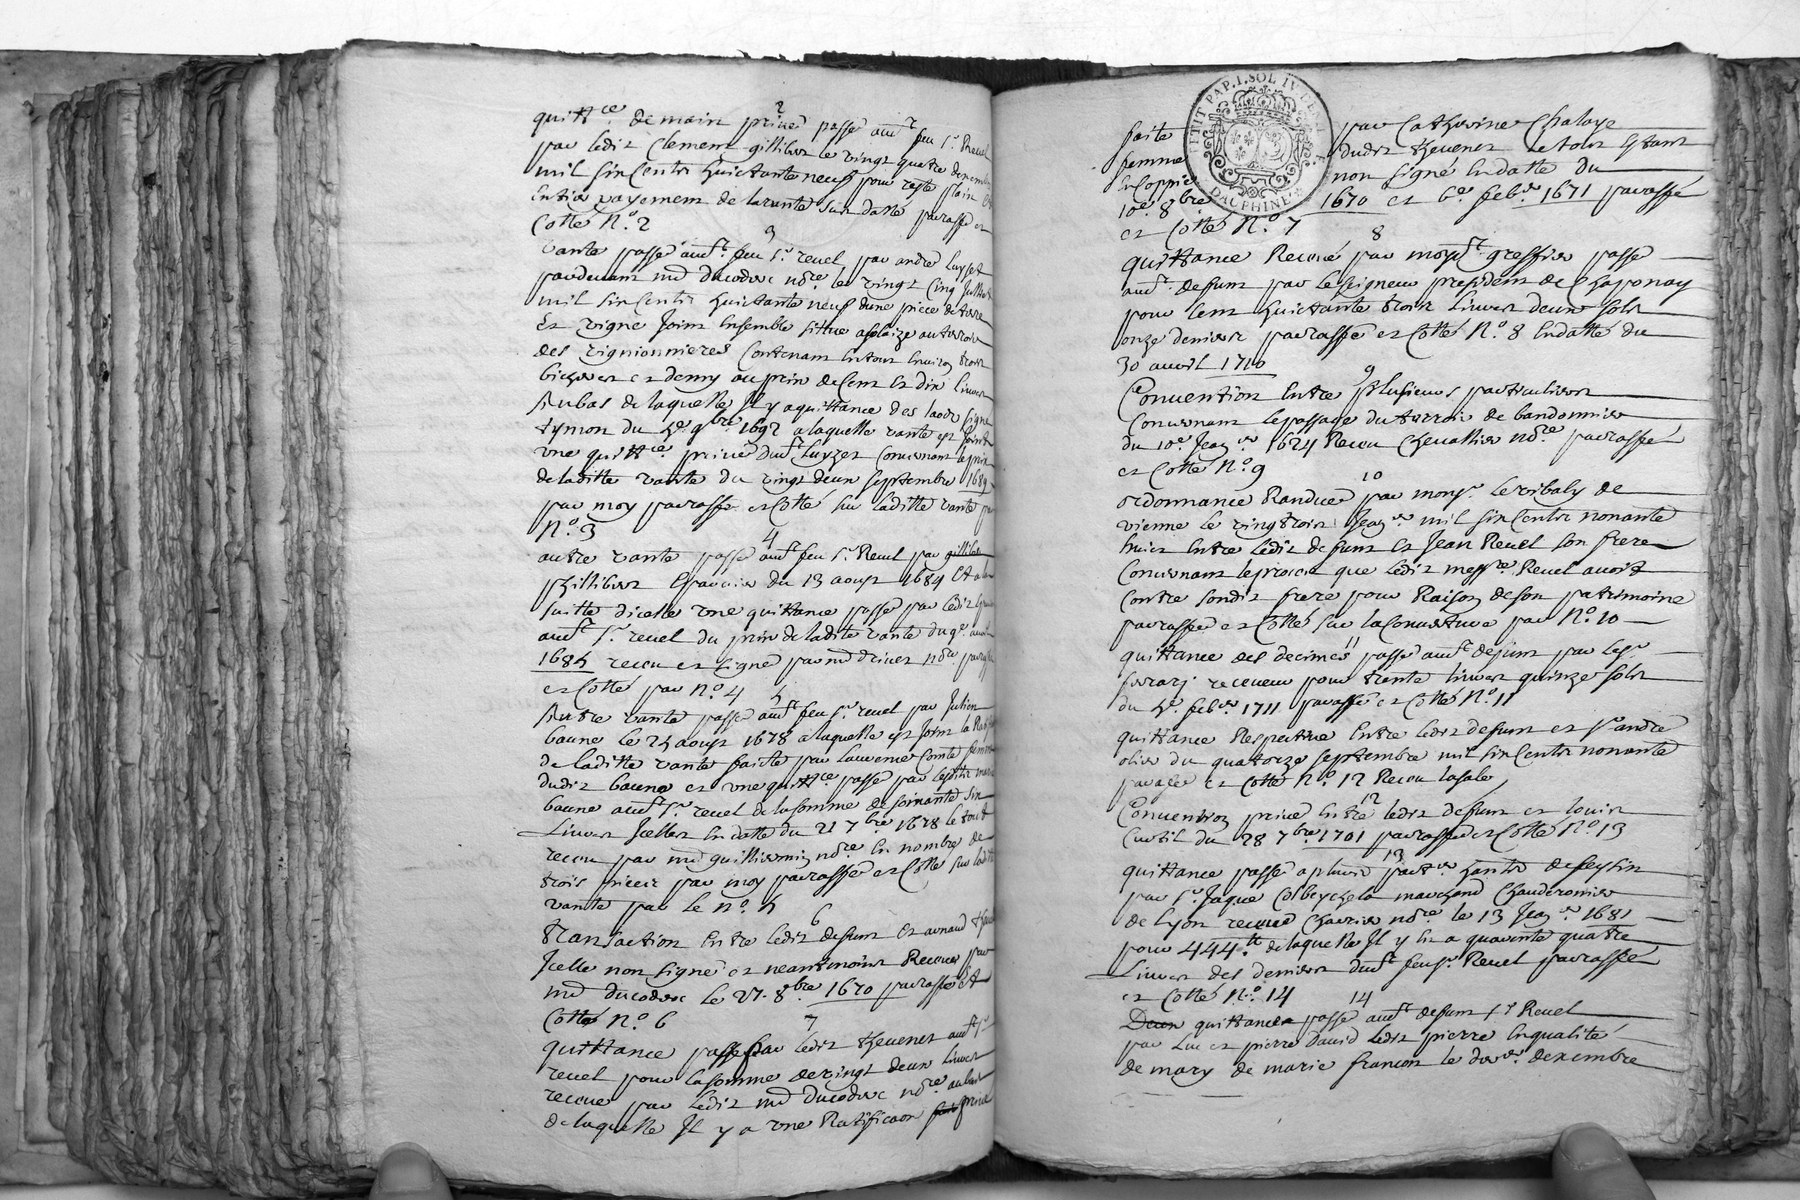 2
quittce de main privé passé audt feu Sr Revel
par ledit Clement gillibert le vingt quatre
mil six Centz huictante neuf pour reste plain
Entier payement de la vante sus datté paraffé et
Cotté No. 2
3
Vante passé audt feu Sr revel par andré luyset
pardevant me ducoderc nore le vingt Cinq Juillet
mil six Centz huictante neuf dune piece de terre
Et vigne Joint Ensemble sittue a solaize au terroir
des vignionnieres Contenant Entour Environ trois
bicherees et demy au prix de Cent Et dix livres
Au bas de laquelle Il y a quittance des laods signé
tymon du 5e 9bre 1692 a laquelle vante est Joint
vne quittce privé dudt Luyzet Concernant le prix
de laditte vante du vingt deux septembre 1689
par moy paraffé et Cotté sur laditte vante par
No. 3
4
autre vante passé audt feu Sr Revel par gillibert
phillibert du 13 aoust 1684 Et a la
suitte dicelle vne quittance passé par ledit
audt Sr revel du prix de ladite vante du 9e
1685 receu et signé par me nore
et Cotté par No. 4
5
Autre vante passé audt feu Sr revel par Julien
baune le 25 aoust 1678 a laquelle est Joint la
de laditte vante faitte par Laurence Comte femme
dudit baune et vne quittce passé par lesditz mariés
baune audt Sr revel de la somme de soixante six
Livres Icelles En datte du 21 7bre 1678 le tout
receu par me guilliermin nore En nombre de
trois pieces par moy paraffé et Cotté sur laditte
vante par le No. 5
6
transaction Entre ledit deffunt Et arnaud
Icelle non signé et neantmoins Receue par
me ducoderc le 27. 8bre 1670 paraffé Et
Cotté No. 6
7
quittance passé par ledit thevenet audt Sr
revel pour la somme de vingt deux livres
receue par ledit me ducoderc nore au bas
de laquelle Il y a vne Ratificaon privé
TIT PAP. I. SOL IV DE
DAUPHINE
faite par Catherine Chalaye
femme dudit thevenet Le tout Estant
En Coppie non signé En datte du
10e 8bre 1670 et 6e febvr 1671 paraffé
et Cotté No. 7
8
quittance Receue par moydt greffier passé
audt deffunt par le seigneur president de Chaponay
pour Cent huictante trois livres deux solz
onze deniers paraffé et Cotté No. 8 En datté du
30 avril 1710
9
Convention Entre plusieurs particuliers
Concernant le passage du terroir de bandonnier
du 10e Janer 1624 Receu Chevallier nore paraffé
et Cotté No. 9
10
ordonnance Randue par monsr le vibaly de
vienne le vingt trois Janer mil six Centz nonante
huict Entre ledit deffunt Et Jean Revel son frere
Concernant le procez que ledit messre Revel avoit
Contre sondit frere pour Raison de son patrimoine
paraffé et Cotté sur la Couverture par No. 10
11
quittance des decimes passé audt defunt par le Sr
ferrary receveur pour trente livres quinze solz
du 5e febvr 1711 paraffé et Cotté No. 11
quittance Respective Entre ledit deffunt et Sr andré
olier du quatorze septembre mil six Centz nonante
parafé Et Cotté No. 12 Receu lasale
12
Convention privé Entre ledit deffunt et louis
Curtil du 28 7bre 1701 paraffé et Cotté No. 13
13
quittance passé a plusieurs partrs hantz de feysin
par Sr Jaque marchand Chauderonnier
de Lyon receue Charrier nore le 13 Janer 1681
pour 444 lt de laquelle Il y En a quarente quatre
Livres des deniers dudt feu Sr Revel paraffé
et Cotté No. 14
14
Deux quittances passé audt deffunt Sr Revel
par Luc et pierre David ledit pierre En qualité
de mary de marie francois le dexembre